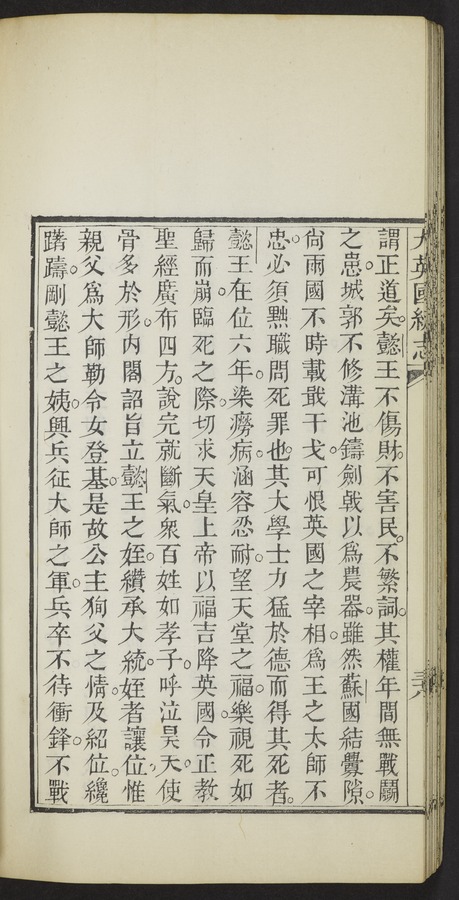 大英國統志
謂正道矣。懿王不傷財。不害民。不繁詞。其權年間無戰鬬
之患。城郭不修。溝池鑄劍戟以爲農器。雖然蘇國結釁隙。
尙兩國不時載戢干戈。可恨英國之宰相。爲王之太師不
忠。必須黜職問死罪也。其大學士力猛於德而得其死者。
懿王在位六年。染癆病。涵容忍耐。望天堂之福。樂視死如
歸而崩。臨死之際。切求天皇上帝以福吉降英國。令正教
聖經廣布四方。說完就斷氣。衆百姓如孝子。呼泣昊天使
骨多於形。內閣詔旨立懿王之姪。纘承大統。姪者讓位。惟
親父爲大師勒令女登基。是故公主狥父之情。及紹位。纔
躊躇。剛懿王之姨。興兵征大師之軍。兵卒不待衝鋒。不戰